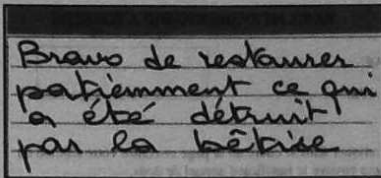 Bravo de restaurer
patiemment ce qui
a été détruit
par la bêtise